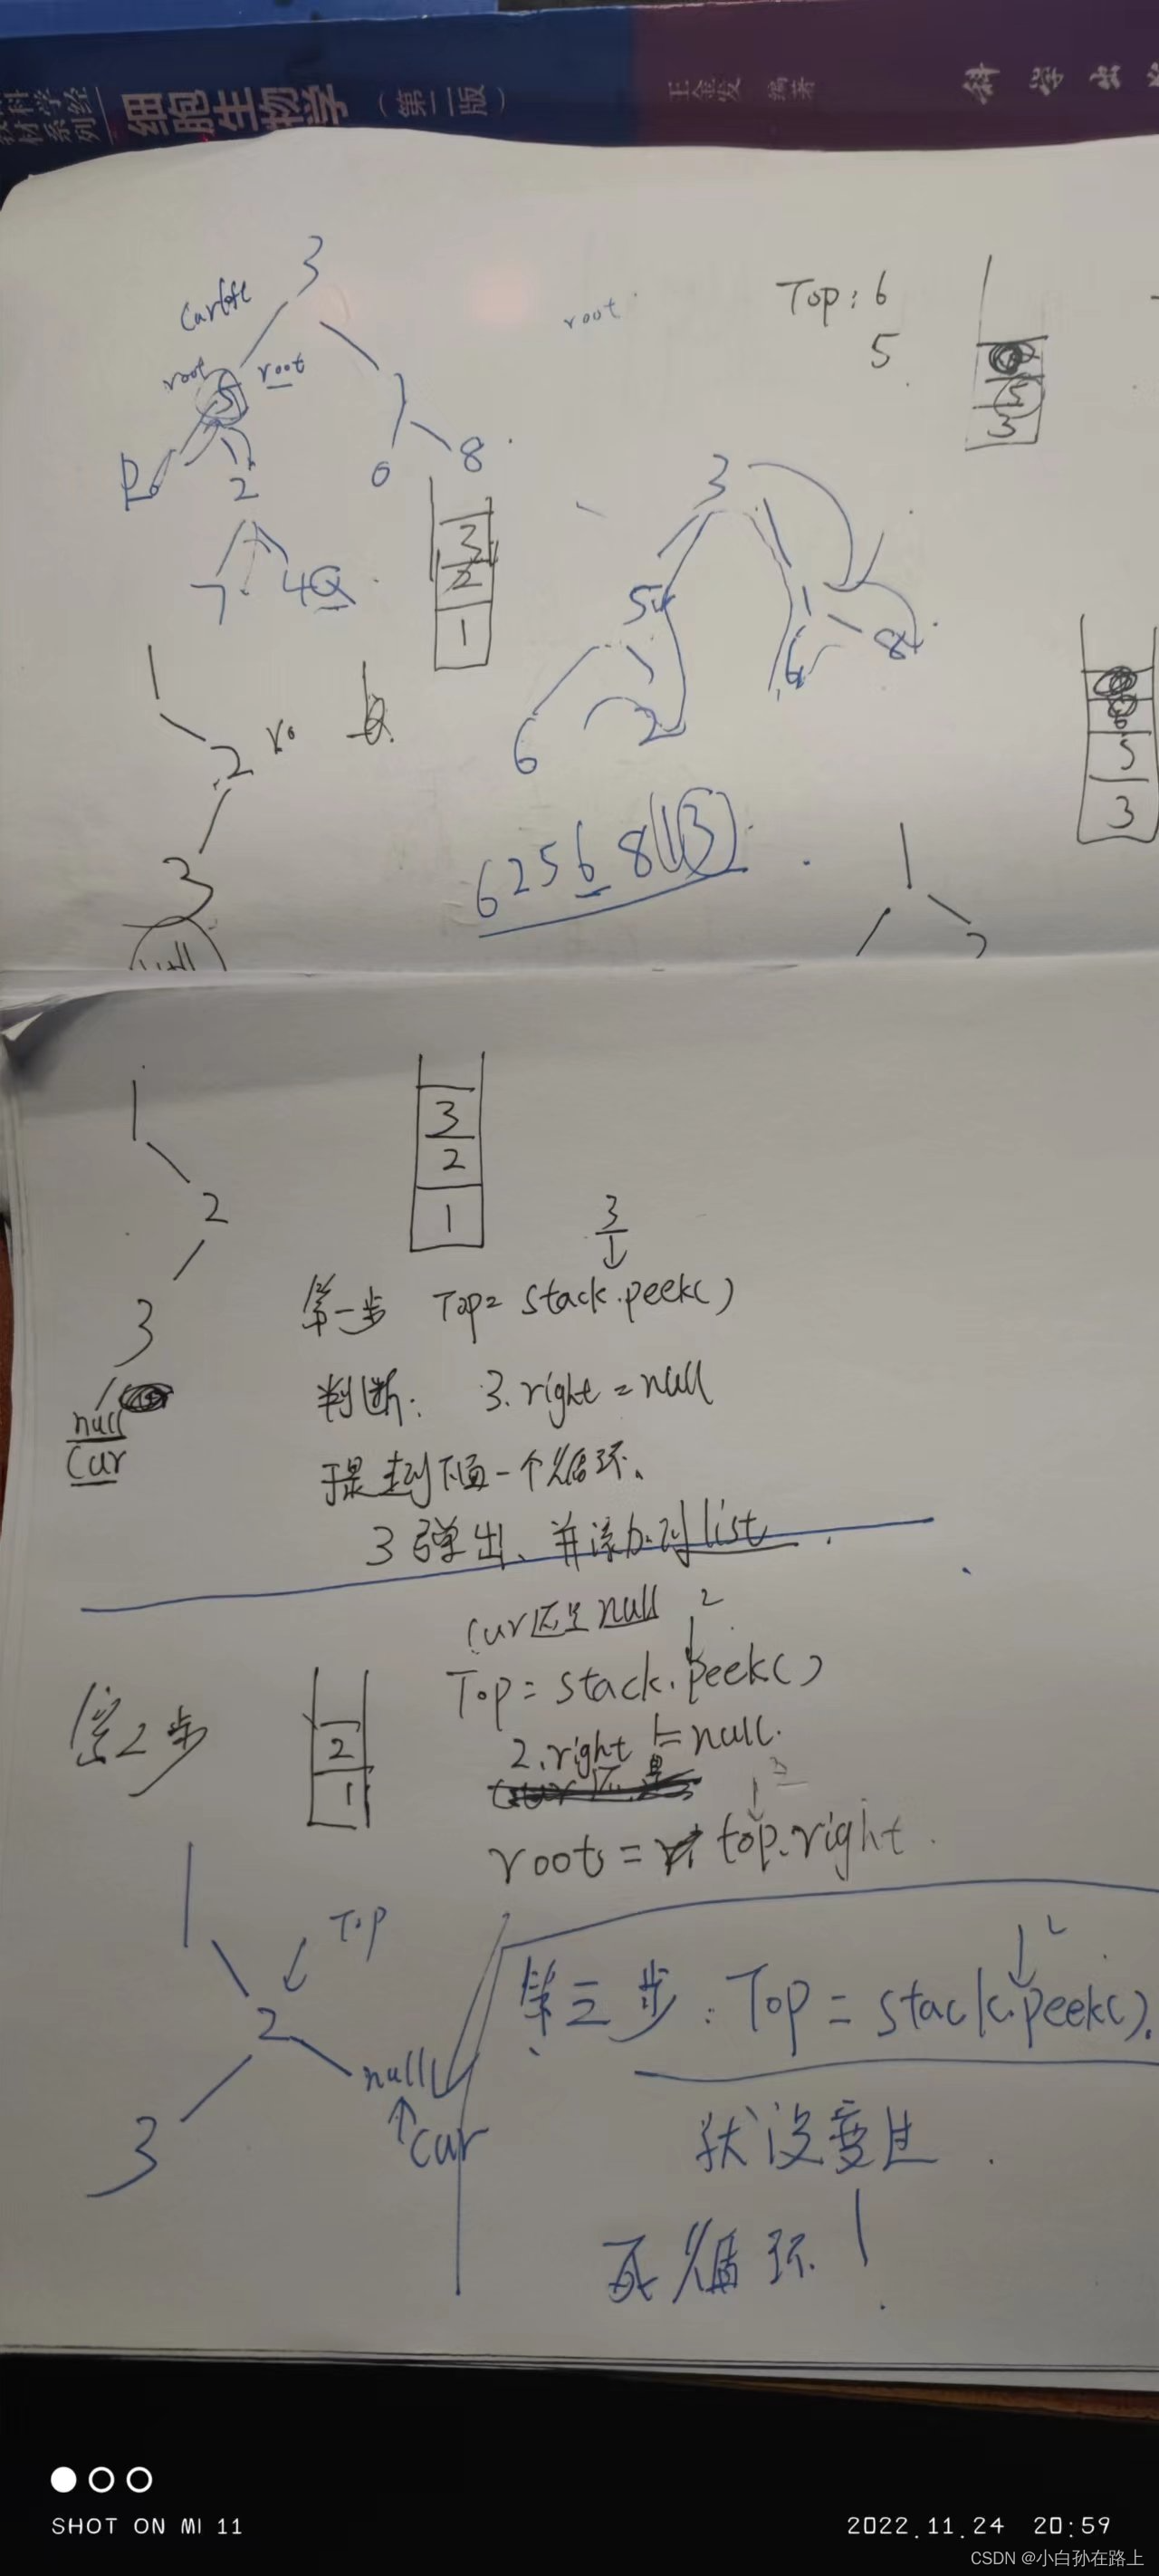 教材系列
科学经
细胞生物学
(第二版)
王金发 编著
科学出
3
root
root
5
root
P
2
0
8
7
4
Q
3
2
1
Top: 6
5
5
3
3
5
1
6
2
6
8
5
3
1
2
3
6 2 5 6 8 1 3
1
1
2
3
null
cur
3
2
1
3
第一步 Top= stack.peek()
判断: 3.right = null
于是走到下面一个循环、
3弹出、并添加到list
cur还是null
2
第2步
2
1
Top = stack.peek()
2.right != null.
3
roots = top.right
1
Top
2
null
3
cur
2
第三步: Top = stack.peek().
状没变
死循环!
SHOT ON MI 11
2022.11.24 20:59
CSDN @小白孙在路上